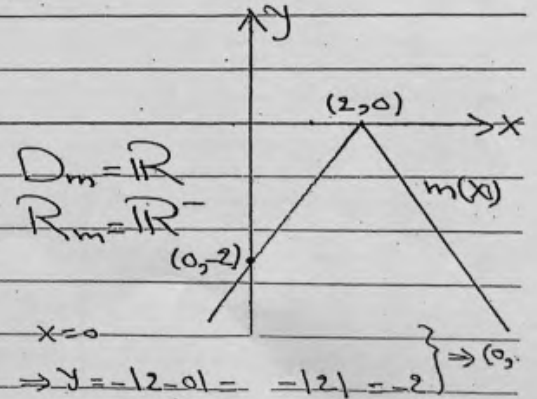 y
(2,0)
x
Dm=ℝ
m(x)
Rm=ℝ⁻
(0,-2)
x=0
⇒ y = -|2-0| = -|2| = -2 } ⇒ (0,